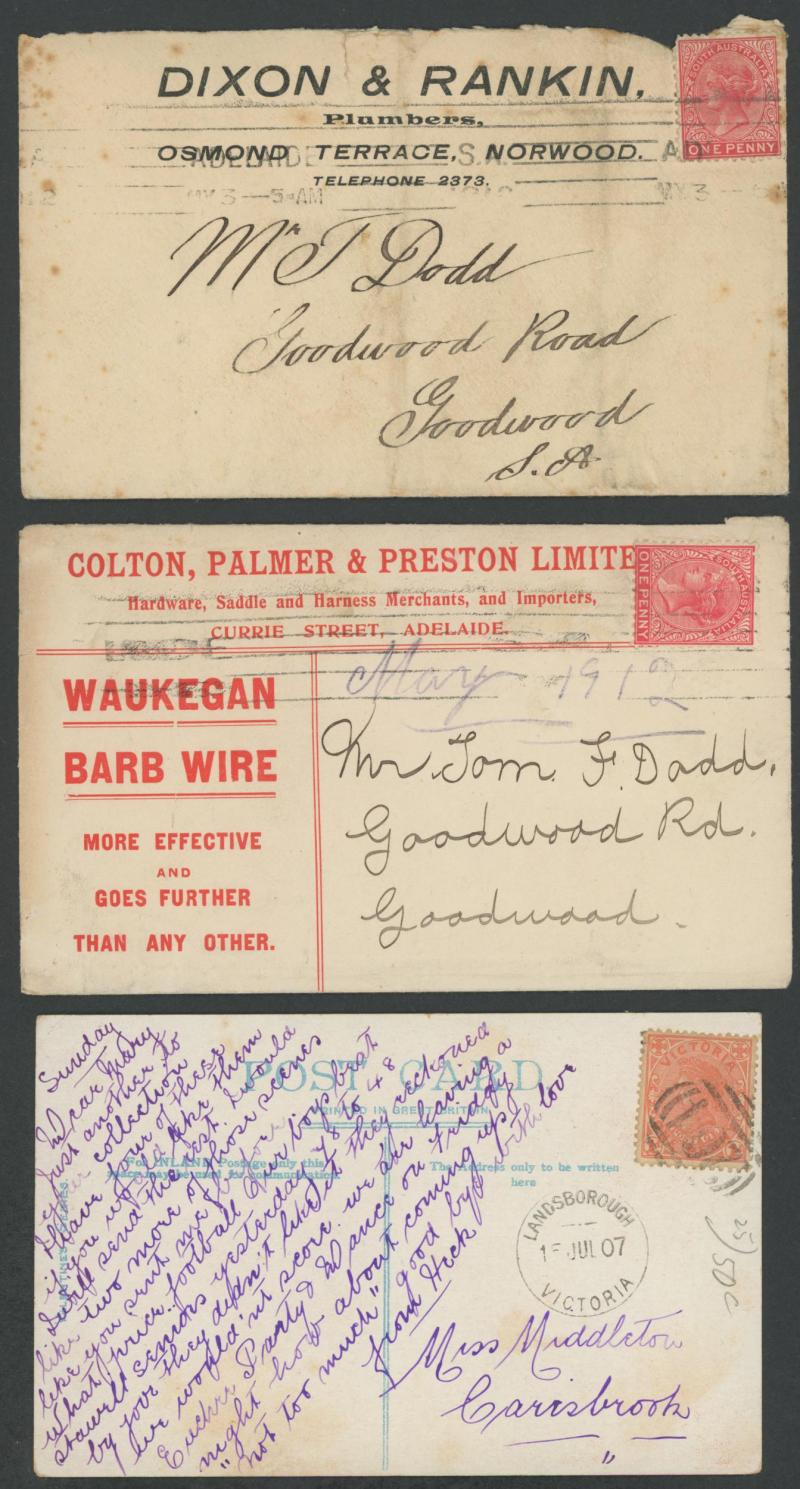 DIXON & RANKIN,
Plumbers,
OSMOND TERRACE, NORWOOD.
TELEPHONE 2373.
ADELAIDE S.A.
MY 3 — 5 AM
MY 3
SOUTH AUSTRALIA
ONE PENNY
Mr T Dodd
Goodwood Road
Goodwood
S.A
COLTON, PALMER & PRESTON LIMITE
Hardware, Saddle and Harness Merchants, and Importers,
CURRIE STREET, ADELAIDE.
SOUTH AUSTRALIA
ONE PENNY
WAUKEGAN
BARB WIRE
MORE EFFECTIVE
AND
GOES FURTHER
THAN ANY OTHER.
May 1912
Mr Tom. F. Dodd,
Goodwood Rd.
Goodwood.
POST CARD
PRINTED IN GREAT BRITAIN
For INLAND Postage only this
space may be used for communication
The Address only to be written
here
VICTORIA
LANDSBOROUGH
15 JUL 07
VICTORIA
25)
50c
Sunday
Dear Mary
Just another to
your collection
I have four of these
if you would like them
I will send the rest. I would
like two more of those scenes
like you sent me before
what price football Our boys beat
stawell seniors yesterday 78 to 48
by jove they didn't like it they reckoned
we would'nt score. we are having a
Euchre Party & Dance on Friday
night how about coming up?
"not too much" good bye with love
from Heck
Miss Middleton
Carisbrook
"